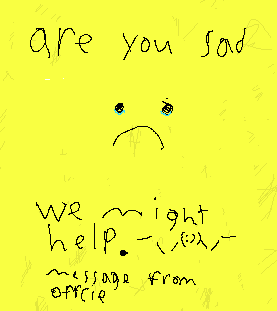 are you sad
we might
help.
message from
offcie